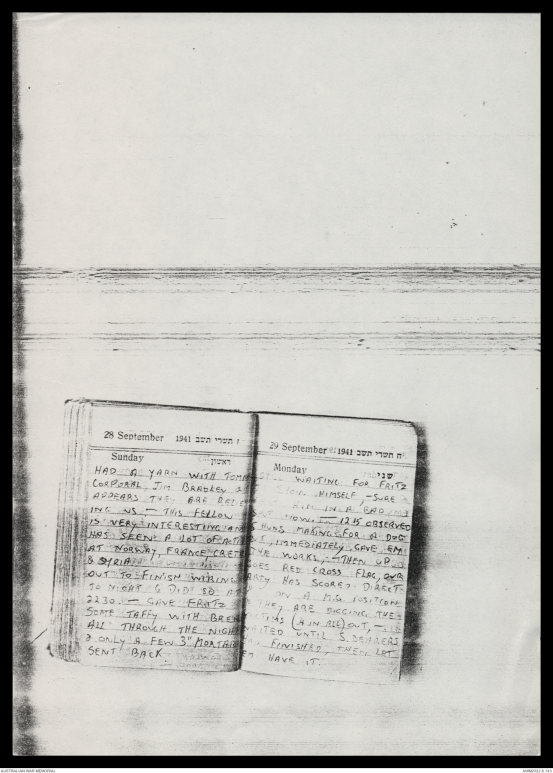 28 September 1941 ו תשרי תשב
Sunday ראשון
HAD A YARN WITH TOMM
CORPORAL JIM BRADLEY &
APPEARS THEY ARE RELIE
ING US — THIS FELLOW
IS VERY INTERESTING AN
HAS SEEN A LOT OF ACTI
AT NORWAY, FRANCE CRETE
& SYRIA
OUT TO FINISH WIRING
TO NIGHT & DID SO AT
2230. — GAVE FRITZ
SOME TAFFY WITH BREN
ALL THROUGH THE NIGH
& ONLY A FEW 3" MORTARS
SENT BACK.
29 September 1941 ח תשרי תשב
Monday שני
WAITING FOR FRITZ
HIMSELF — SURE
HIM IN A BAD
NOW. — 1215 OBSERVED
HUNS MAKING FOR A DUG
IMMEDIATELY GAVE EM
THE WORKS, — THEN UP
GOES RED CROSS FLAG, OUR
HAS SCORED DIRECT
ON A M.G. POSITION
THEY ARE DIGGING THE
(4 IN ALL) OUT, —
WAITED UNTIL S. BEARERS
FINISHED, THEN LET
HAVE IT.
AUSTRALIAN WAR MEMORIAL